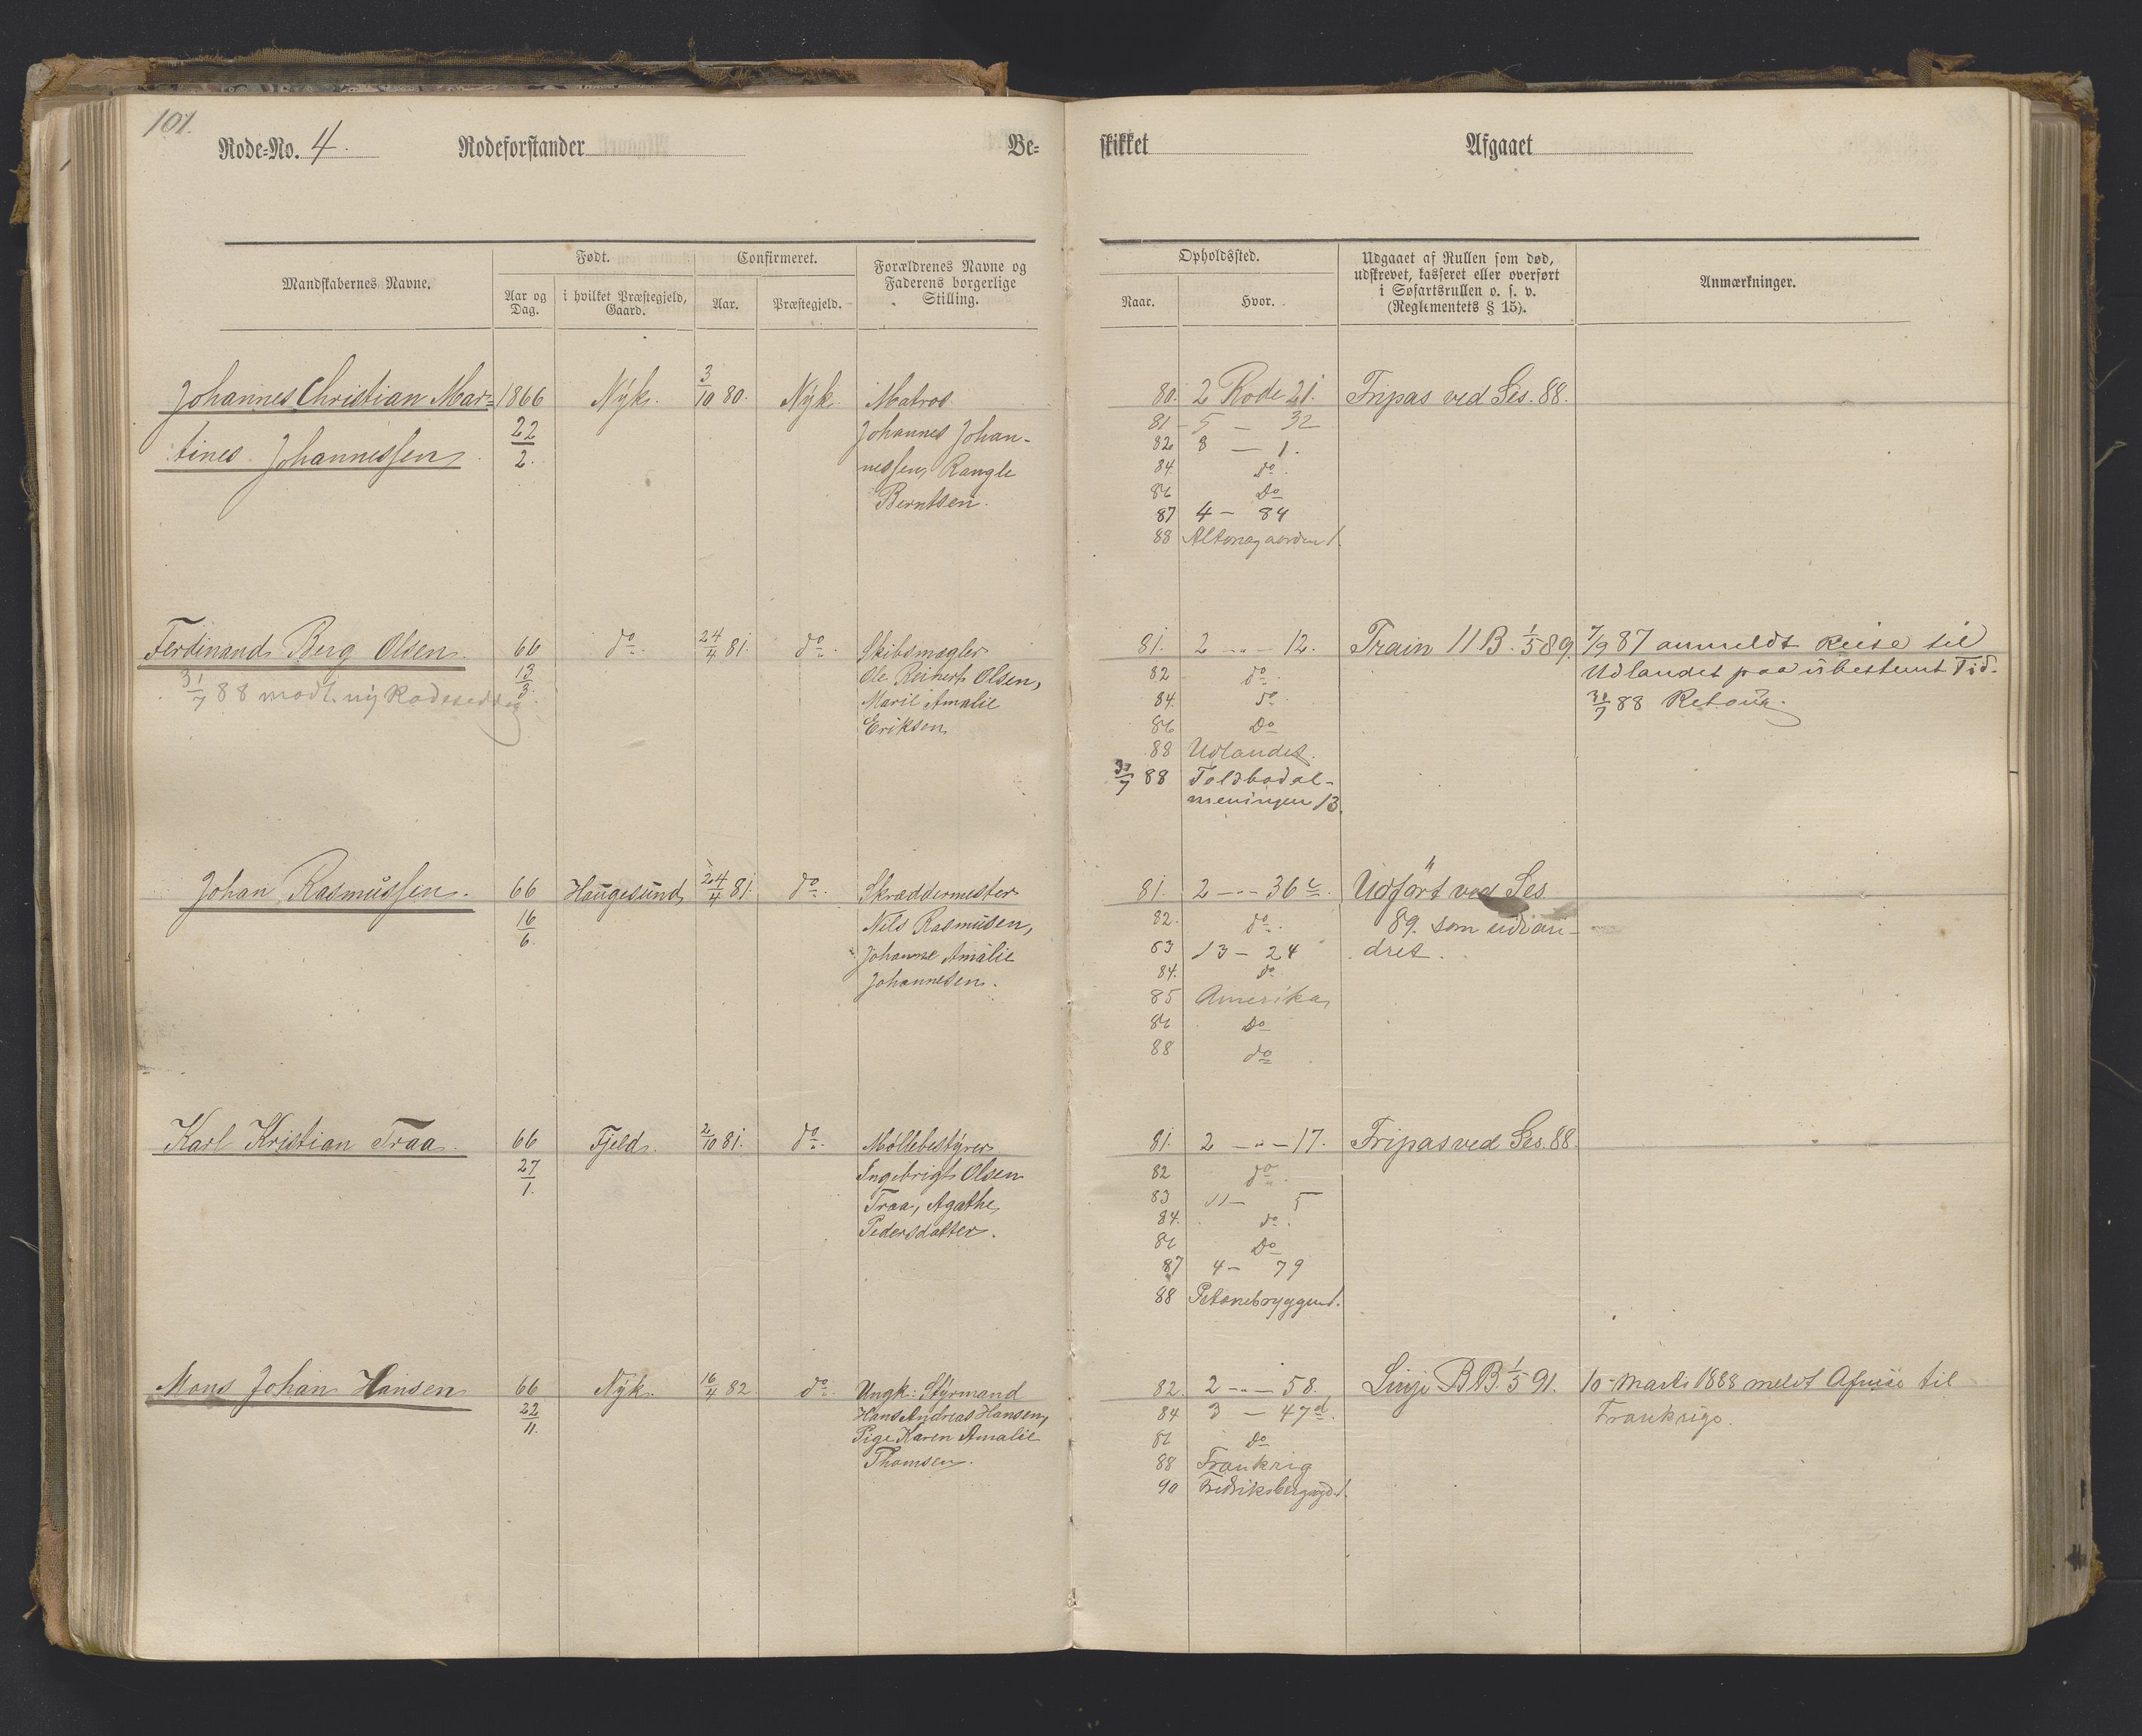 101.
Rode-No. 4. Rodeforstander Be-
skikket Afgaaet
Mandskabernes Navne.
Født.
Aar og Dag.
i hvilket Præstegjeld, Gaard.
Confirmeret.
Aar.
Præstegjeld.
Forældrenes Navne og
Faderens borgerlige
Stilling.
Opholdssted.
Naar.
Hvor.
Udgaaet af Rullen som død,
udskrevet, kasseret eller overført
i Søfartsrullen o. s. v.
(Reglementets § 15).
Anmærkninger.
Johannes Christian Mar- 1866 Nyk. 3/10 80. Nyk. Matros
tines Johannessen 22/2. Johannes Johan-
nessen, Rangle
Berntsen.
80. 2 Rode 21. Fripas ved Ses. 88.
81 - 5 — 32
82 8 — 1.
84. do.
86 Do
87 4 - 84
88 Altonagaarden 1.
Ferdinand Berg Olsen 66 do. 24/4 81. do. Skibsmægler
13/3. Ole Reinert Olsen,
31/7 88 modt. ny Rodeseddel
Marie Amalie
Eriksen
81. 2 - " - 12. Train 11 B. 1/5 89. 7/9 87 anmeldt Reise til
82 do. Udlandet paa ubestemt Tid.
84. do. 31/7 88 Retour.
86 Do
88 Udlandet.
31/7 88 Toldbodal-
meningen 13.
Johan Rasmussen. 66 Haugesund 24/4 81. do. Skræddermester
16/6. Nils Rasmusen,
Johanne Amalie
Johannesen.
81. 2 - " - 36 c. Udført ved Ses.
82. do. 89. som udvan-
83 13 - 24 dret.
84. do
85 Amerika
86 Do
88 do
Karl Kristian Traa. 66 Fjeld. 2/10 81. do. Møllebestyrer
27/1. Ingebrigt Olsen
Traa, Agathe
Pedersdatter.
81. 2 - " - 17. Fripas ved Ses. 88.
82 do.
83 11 - 5
84. do.
86 Do
87 4 - 79
88
Mons Johan Hansen 66 Nyk. 16/4 82. do. Ungk: Styrmand
22/11. Hans Andreas Hansen,
Pige Karen Amalie
Thomsen.
82. 2 - " - 58. Linje B B. 1/5 91. 10 - Marts 1888 meldt Afreise til
84 3 - 47 a. Frankrige.
86 Do
88 Frankrig
90